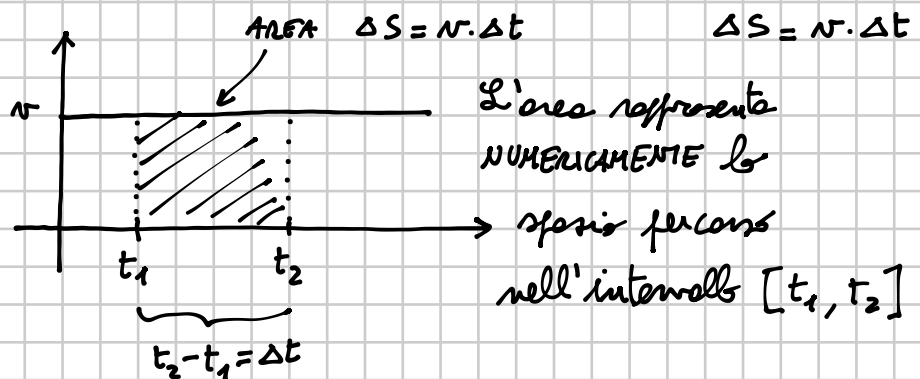 AREA ΔS = v · Δt ΔS = v · Δt
v
L'area rappresenta
NUMERICAMENTE lo
spazio percorso
t₁ t₂
nell'intervallo [t₁, t₂]
t₂ - t₁ = Δt